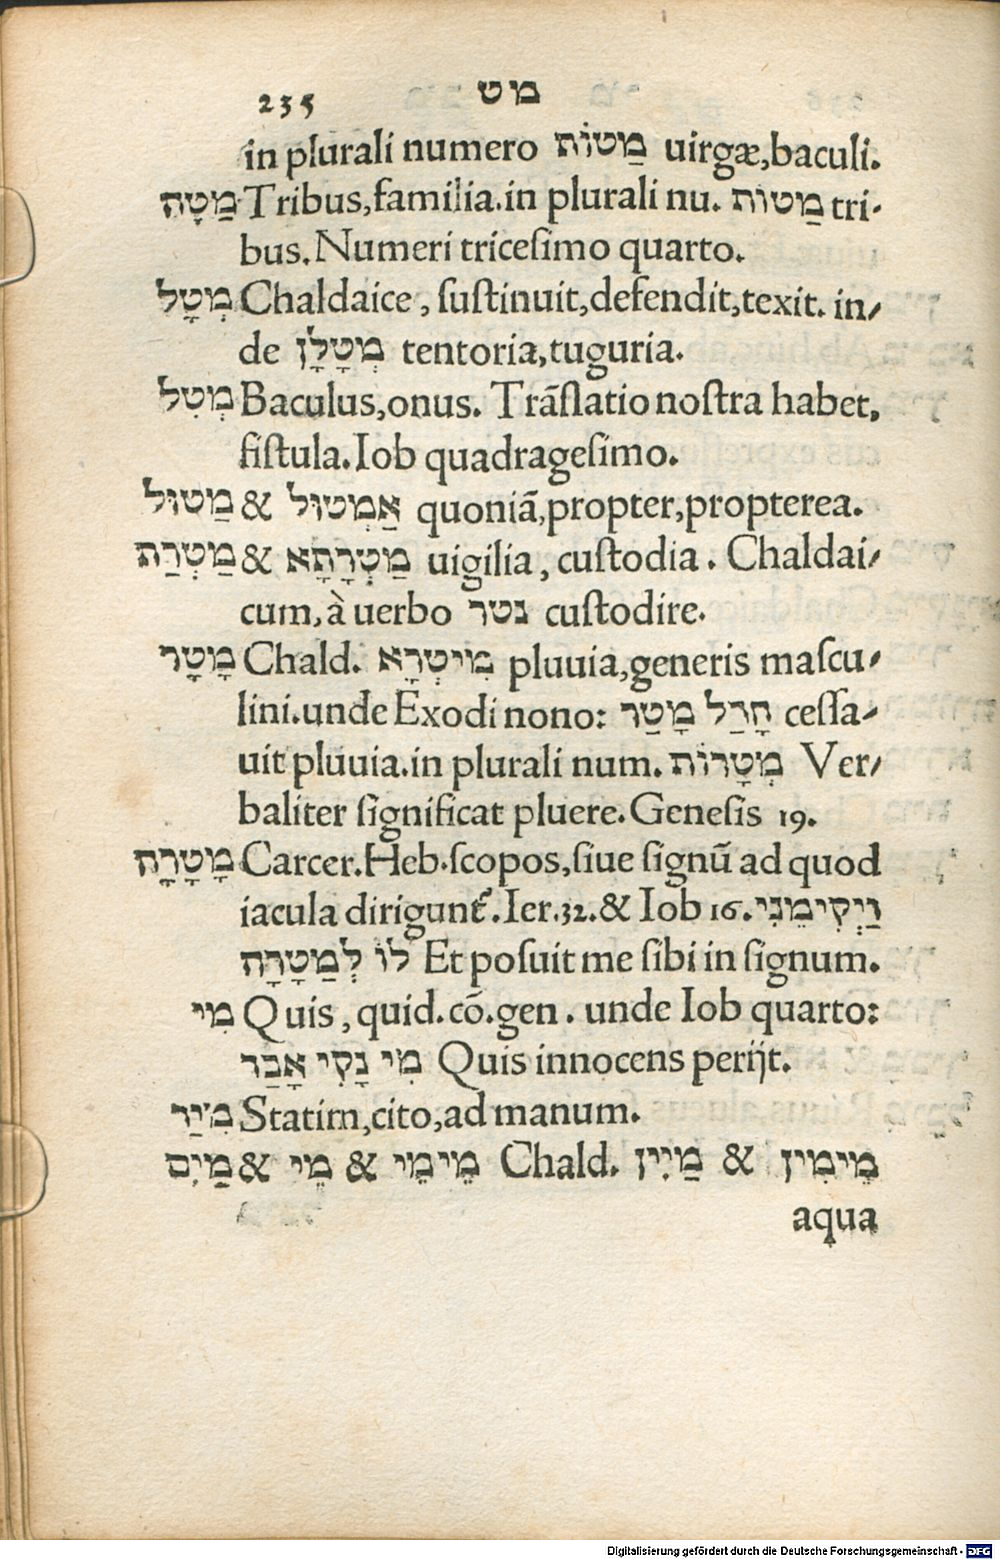 235 מט
in plurali numero מַטּוֹת uirgæ,baculi.
מַטָּה Tribus,familia.in plurali nu. מַטּוֹת tri-
bus.Numeri tricesimo quarto.
מְטָל Chaldaice, sustinuit,defendit,texit. in/
de מְטָלָן tentoria,tuguria.
מְטִל Baculus,onus. Trāslatio nostra habet,
fistula.Iob quadragesimo.
מַטּוּל & אַמְטוּל quoniā,propter,propterea.
מַטְּרַת & מַטְּרָתָא uigilia, custodia. Chaldai/
cum, à uerbo נטר custodire.
מָטָר Chald. מִיטְרָא pluuia,generis mascu/
lini.unde Exodi nono: חָדַל מָטַר cessa/
uit pluuia.in plurali num. מְטָרוֹת Ver/
baliter significat pluere.Genesis 19.
מָטָרָה Carcer.Heb.scopos,siue signū ad quod
iacula dirigunt᷑.Ier.32.& Iob 16. וַיְקִימֵנִי
לוֹ לְמַטָרָה Et posuit me sibi in signum.
מִי Quis, quid.cō.gen. unde Iob quarto:
מִי נָקִי אָבַד Quis innocens perijt.
מִיַּד Statim,cito,ad manum.
מַיִם & מֵי & מֵימֵי Chald. מַיִין & מֵימִין
aqua
Digitalisierung gefördert durch die Deutsche Forschungsgemeinschaft - DFG